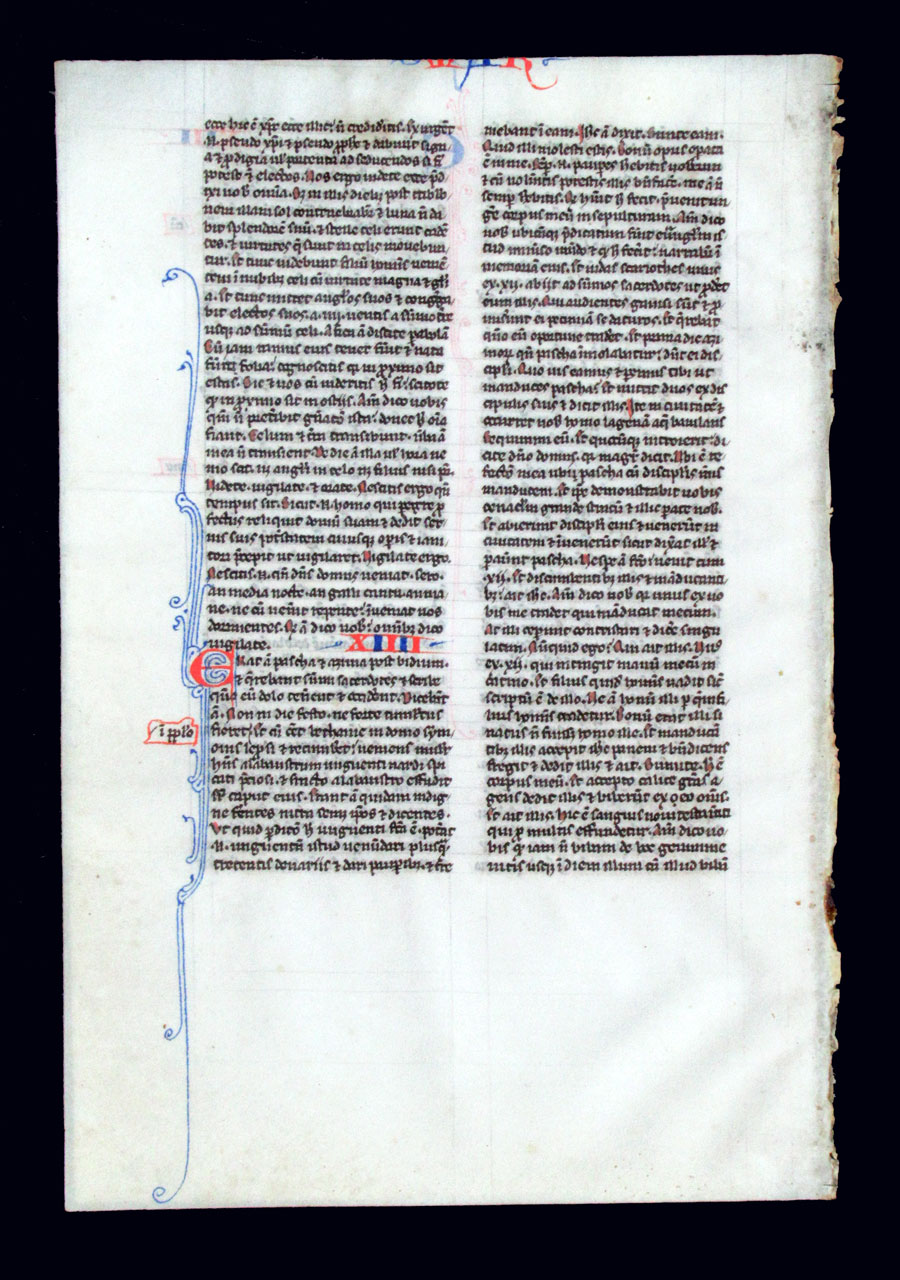 ecce hic ē xp̄c ecce illic: n̄ credideritis. Exurgēt
.n. pseudo xp̄i & pseudo ꝓph̄e & dabunt signa
& ꝓdigia ad seducendos si fi
potest & electos. Uos ergo uidete ecce p̄d
ixi uob̄ omīa. Sȝ in illis dieb; post tribl̄o
nem illam sol contenebrabit̄ & luna n̄ da
bit splendorē suū. & stelle celi erunt cadē
tes. & uirtutes q̄ sunt in celis mouebun
tur. Et tunc uidebunt filiū hoīnis ueniē
tem ī nubib; celi cū uirtute magna & gl̄i
a. Et tunc mittet angl̄os suos & congrega
bit electos suos a .iiii. uentis a sūmo t̄re
usq; ad sūmū celi. A ficu ā discite parabolā
Cū iam ramus eius tener fuit̄ & nata
fūint folia: cognoscitis qr in ꝓximo sit
estas. Sic & uos cū uideritis h̄ fi̇: scitote
qr in ꝓximo sit in ostiis. Am̄ dico uobis
qm̄ n̄ p̄teribit gn̄atō ista: donec h̄ oīa
fiant. Celum & t̄ra transibunt. ūba ā
mea n̄ transient. De die ā illa ul̄ hora ne
mo scit. neq; angl̄i in celo neq; filius nisi pr̄.
Uidete. uigilate. & orate. Nescitis ergo qn̄
tempus sit. Sicut .n. homo qui peregre ꝓ
fectus reliquit domū suam & dedit ser
uis suis potestatem cuiusq; opis & iani
tori p̄cepit ut uigilaret. Uigilate ergo.
Nescitis .n. qn̄ dn̄s domus ueniat. sero.
an media nocte. an galli cantu. an ma
ne. ne cū uenit̄ repente: īueniat uos
dormientes. Qd ā dico uob̄: omīb; dico
uigilate.
XIIII
Erat ā pascha & azima post biduum.
& q̄rebant sūmi sacerdotes & scribe
quō eū dolo tenērent & occiderent. Dicebāt
ā. Non in die festo. ne forte tumultus
fieret: Et cū eet̄ bethanie in domo sym
onis leprosi & recumberet: uenit mulier
hn̄s alabastrum unguenti nardi spi
cati p̄ciosi. & fracto alabastro effudit
sup̄ caput eius. Erant ā quidam indig
ne ferentes intra semet ip̄os & dicentes.
Ut quid perditō h̄ unguenti fc̄a ē. Poterat
.n. unguentum istud uenūdari plusq̄
trecentis denariis & dari paupib;. & fre
mebant ī eam. Ih̄c ā dixit. Sinite eam.
Quid illi molesti estis. Bonū opus opata
ē in me. Semp .n. paupes h̄ebitis uobiscum
& cū uolūitis potestis illis bn̄facere. me ā n̄
semp h̄ebitis. Qd h̄uit h̄ fecit. p̄uenit un
gere corpus meū in sepulturam. Am̄ dico
uob̄ ubicūq; p̄dicatum fūit euāgliū is
tud in uniuso mūdo & qd h̄ fecit: narrabit̄ ī
memoriam eius. Et iudas scariothes unus
ex .xii. abiit ad sūmos sacerdotes ut ꝓderet
eum illis. Qui audientes gauisi sūt & ꝓ
miserunt ei pecuniam se daturos. Et q̄rebat
quō eū oportune traderet. Et prima die azi
morū qn̄ pascha īmolabatur: dn̄t ei dis
cipli. Quo uis eamus & paremus tibi ut
manduces pascha: Et mittit duos ex dis
cipulis suis & dicit illis. Ite in ciuitatē &
occurret uob̄ homo lagenā aq̄ baiulans
sequimini eū. Et quocūq; introierit: di
cite dn̄o domus. qr magr̄ dicit. Ubi ē re
fectō mea ubi pascha cū discipulis meis
manducem. Et ip̄e demonstrabit uobis
cenaclm̄ grande stratū & illic parate nob̄.
Et abierunt discipli eius & uenerūt in
ciuitatem & īuenerūt sicut dixat illis &
parauerunt pascha. Uespe ā facto: uenit cum
.xii. Et discumbentib; illis & māducanti
b;: ait ihc̄. Am̄ dico uob̄ qr unus ex uo
bis me tradet qui māducat mecum.
At illi ceperunt contristari & dicere singu
latim. Nūquid ego: Qui ait illis. Unus
ex .xii. qui intingit manū mecū in
catino. Et filius quid hoīnis uadit sic
scriptū ē de illo. Ue ā hoīni illi p quē fi
lius hoīnis tradetur. Bonū erat illi si
natus n̄ fuiss& homo ille. Et manducā
tibus illis accepit ihc̄ panem & bn̄dicens
fregit & dedit illis & ait. Sumite. H̄ ē
corpus meū. Et accepto calice grās a
gens dedit illis & biberūt ex eo omēs.
Et ait illis. Hic ē sanguis noui testamēti
qui ꝓ multis effundetur. Am̄ dico uo
bis qr iam n̄ bibam de hoc genimine
uitis usq; ī diem illum cū illud bibā